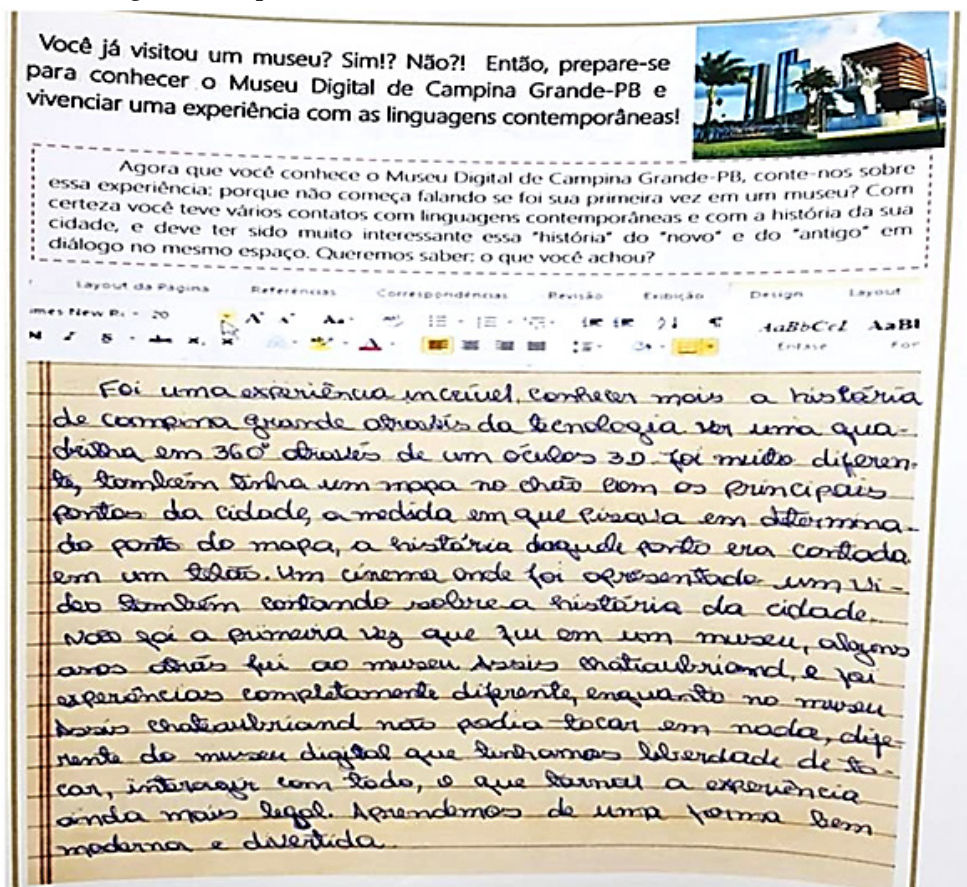 Você já visitou um museu? Sim!? Não?! Então, prepare-se
para conhecer o Museu Digital de Campina Grande-PB e
vivenciar uma experiência com as linguagens contemporâneas!
Agora que você conhece o Museu Digital de Campina Grande-PB, conte-nos sobre
essa experiência; porque não começa falando se foi sua primeira vez em um museu? Com
certeza você teve vários contatos com linguagens contemporâneas e com a história da sua
cidade, e deve ter sido muito interessante essa "história" do "novo" e do "antigo" em
diálogo no mesmo espaço. Queremos saber: o que você achou?
Layout da Página Referências Correspondências Revisão Exibição Design Layout
imes New R 20 Aa AaBbCcI AaBI
N I S abc x, x Ênfase For
Foi uma experiência incrível, conhecer mais a história
de campina grande através da tecnologia ver uma qua-
drilha em 360° através de um óculos 3D foi muito diferen-
te, também tinha um mapa no chão com os principais
pontos da cidade, a medida em que pisava em determina-
do ponto do mapa, a história daquele ponto era contada
em um telão. Um cinema onde foi apresentado um ví-
deo também contando sobre a história da cidade.
Não foi a primeira vez que fui em um museu, alguns
anos atrás fui ao museu Assis chatiaubriand, e foi
experiências completamente diferente, enquanto no museu
Assis chateaubriand não podia tocar em nada, dife-
rente do museu digital que tinhamos liberdade de to-
car, interagir com todo, o que tornal a experiência
ainda mais legal. Aprendemos de uma forma bem
moderna e divertida.